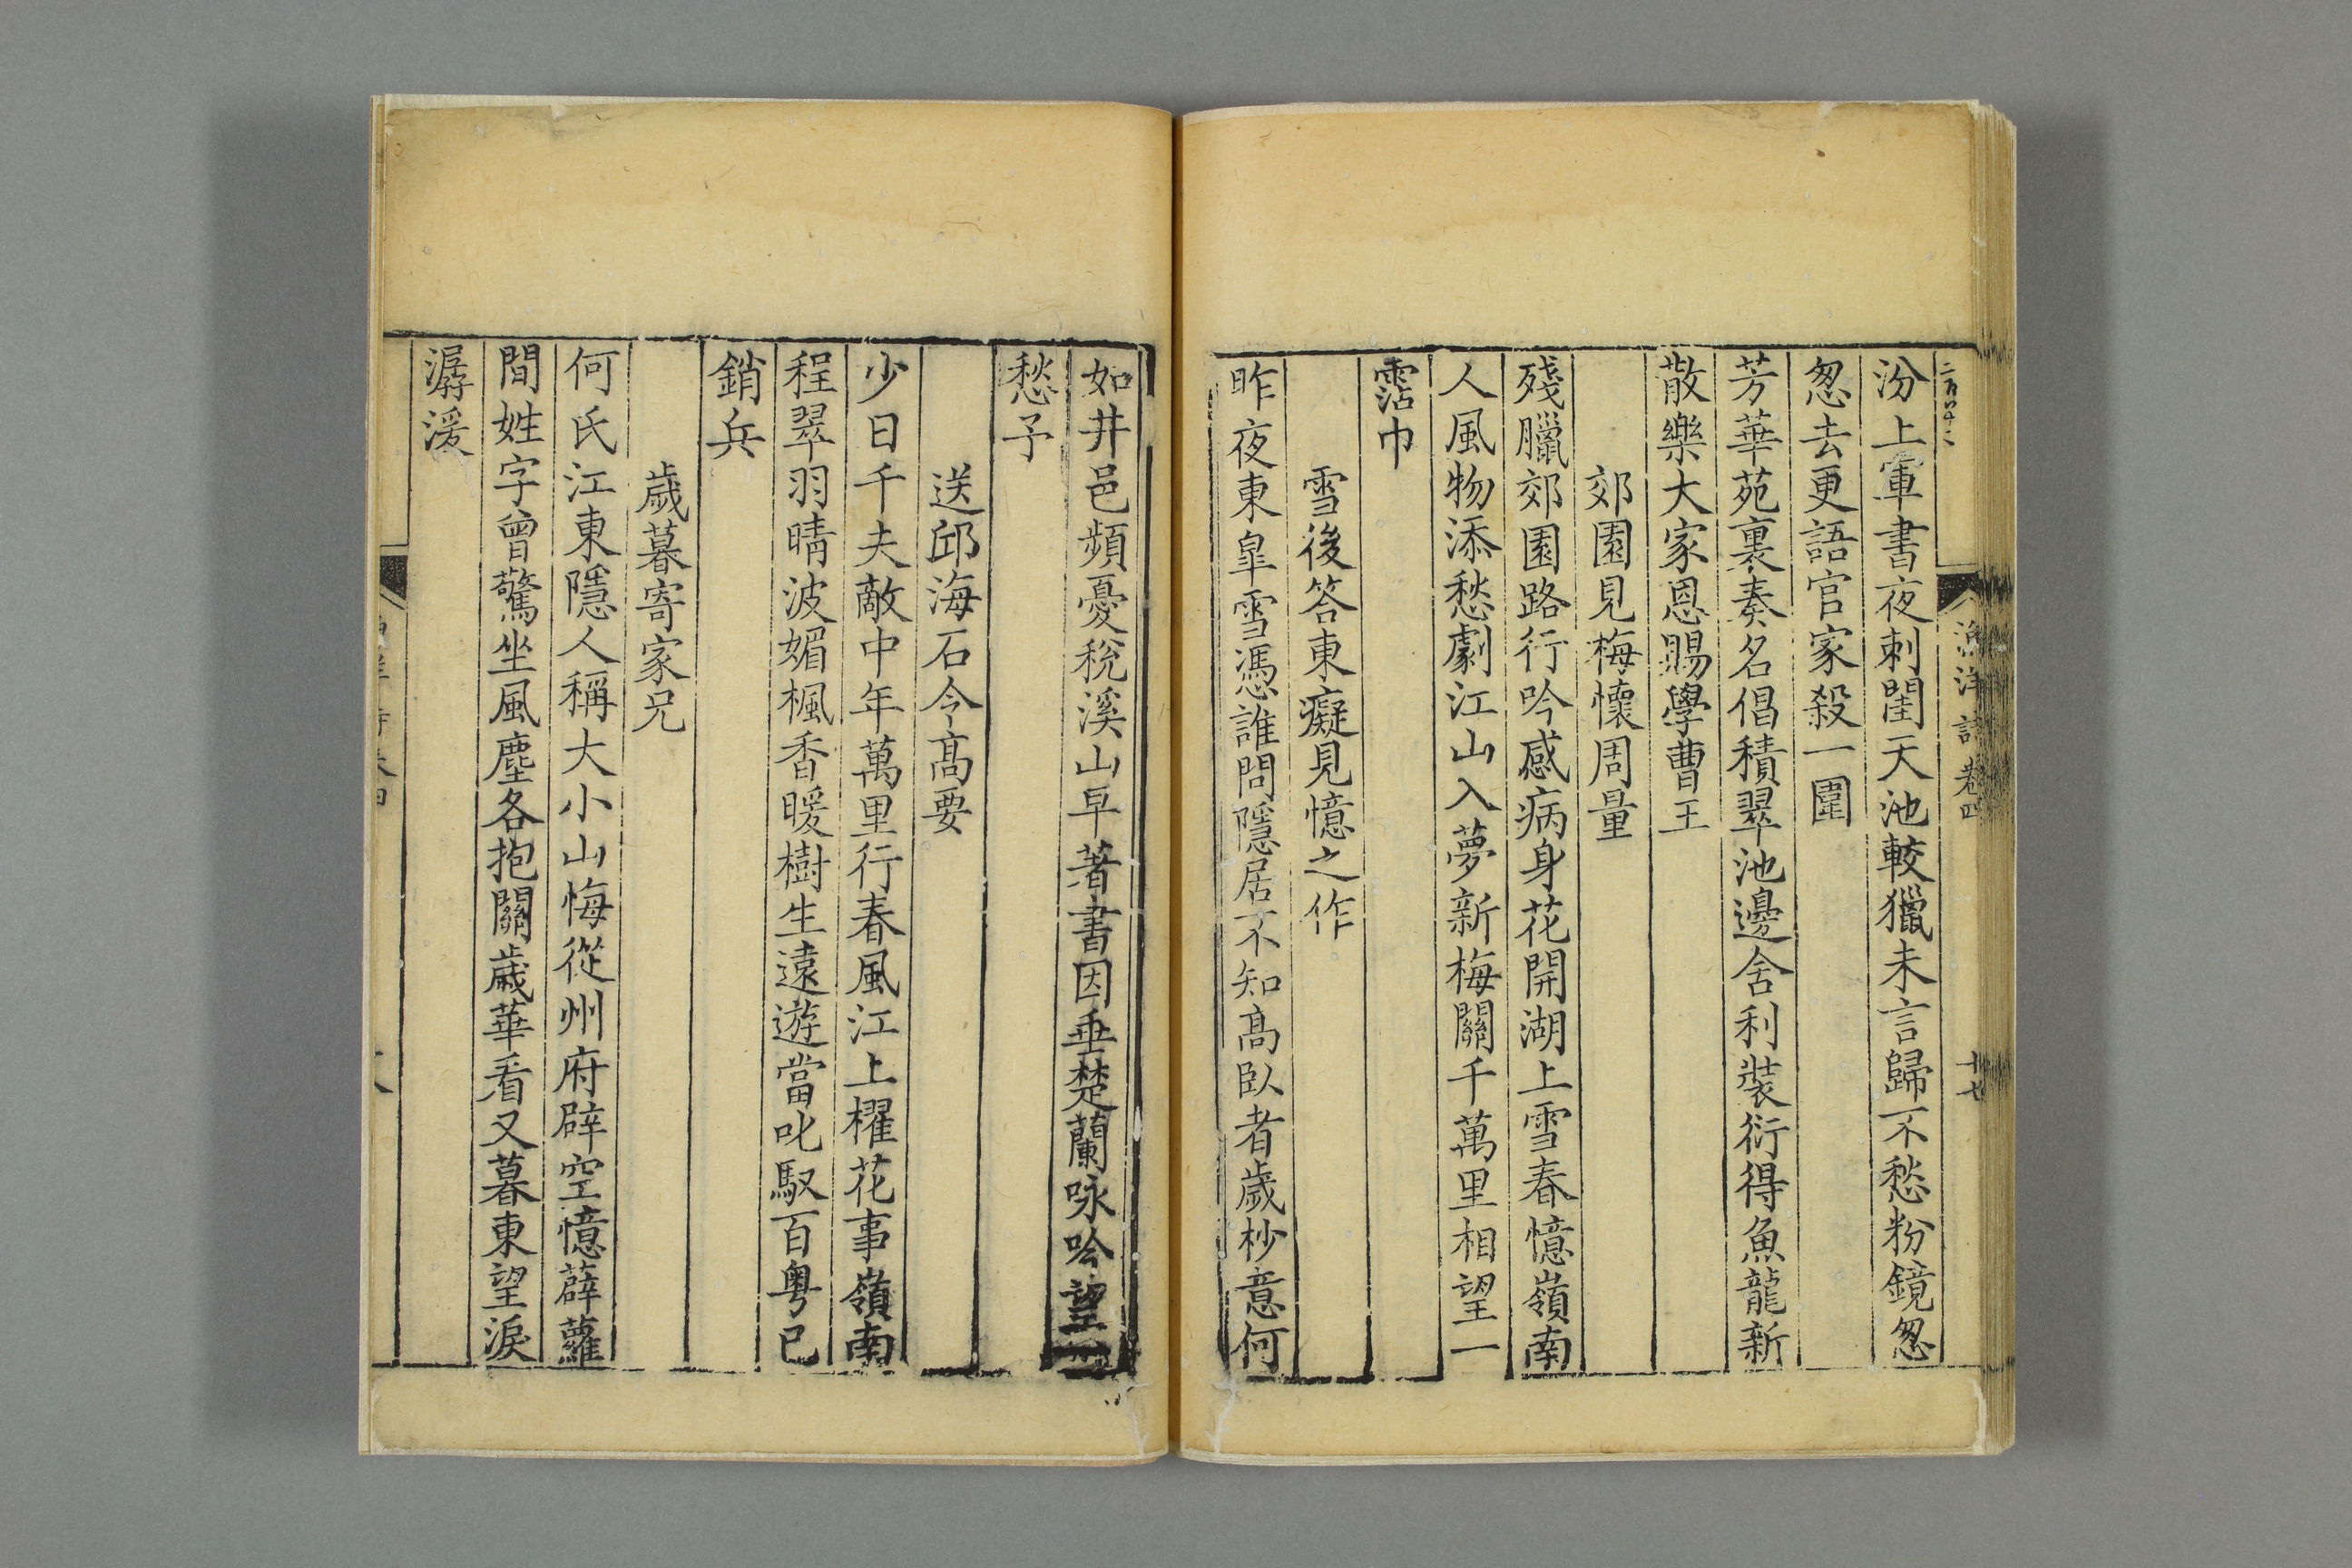 漁洋詩卷四
十七
汾上軍書夜刺閨天池較獵未言歸不愁粉鏡怱
怱去更語官家殺一圍
芳華苑裏奏名倡積翠池邊舍利裝衍得魚龍新
散樂大家恩賜學曹王
郊園見梅懷周量
殘臘郊園路行吟感病身花開湖上雪春憶嶺南
人風物添愁劇江山入夢新梅關千萬里相望一
霑巾
雪後答東癡見憶之作
昨夜東皐雪馮誰問隱居不知高臥者歲杪意何
如井邑頻憂稅溪山早著書因垂楚蘭咏吟望
愁予
送邱海石令高要
少日千夫敵中年萬里行春風江上櫂花事嶺南
程翠羽晴波媚楓香暖樹生遠遊當叱馭百粵已
銷兵
歲暮寄家兄
何氏江東隱人稱大小山悔從州府辟空憶薜蘿
間姓字曾驚坐風塵各抱關歲華看又暮東望淚
潺湲